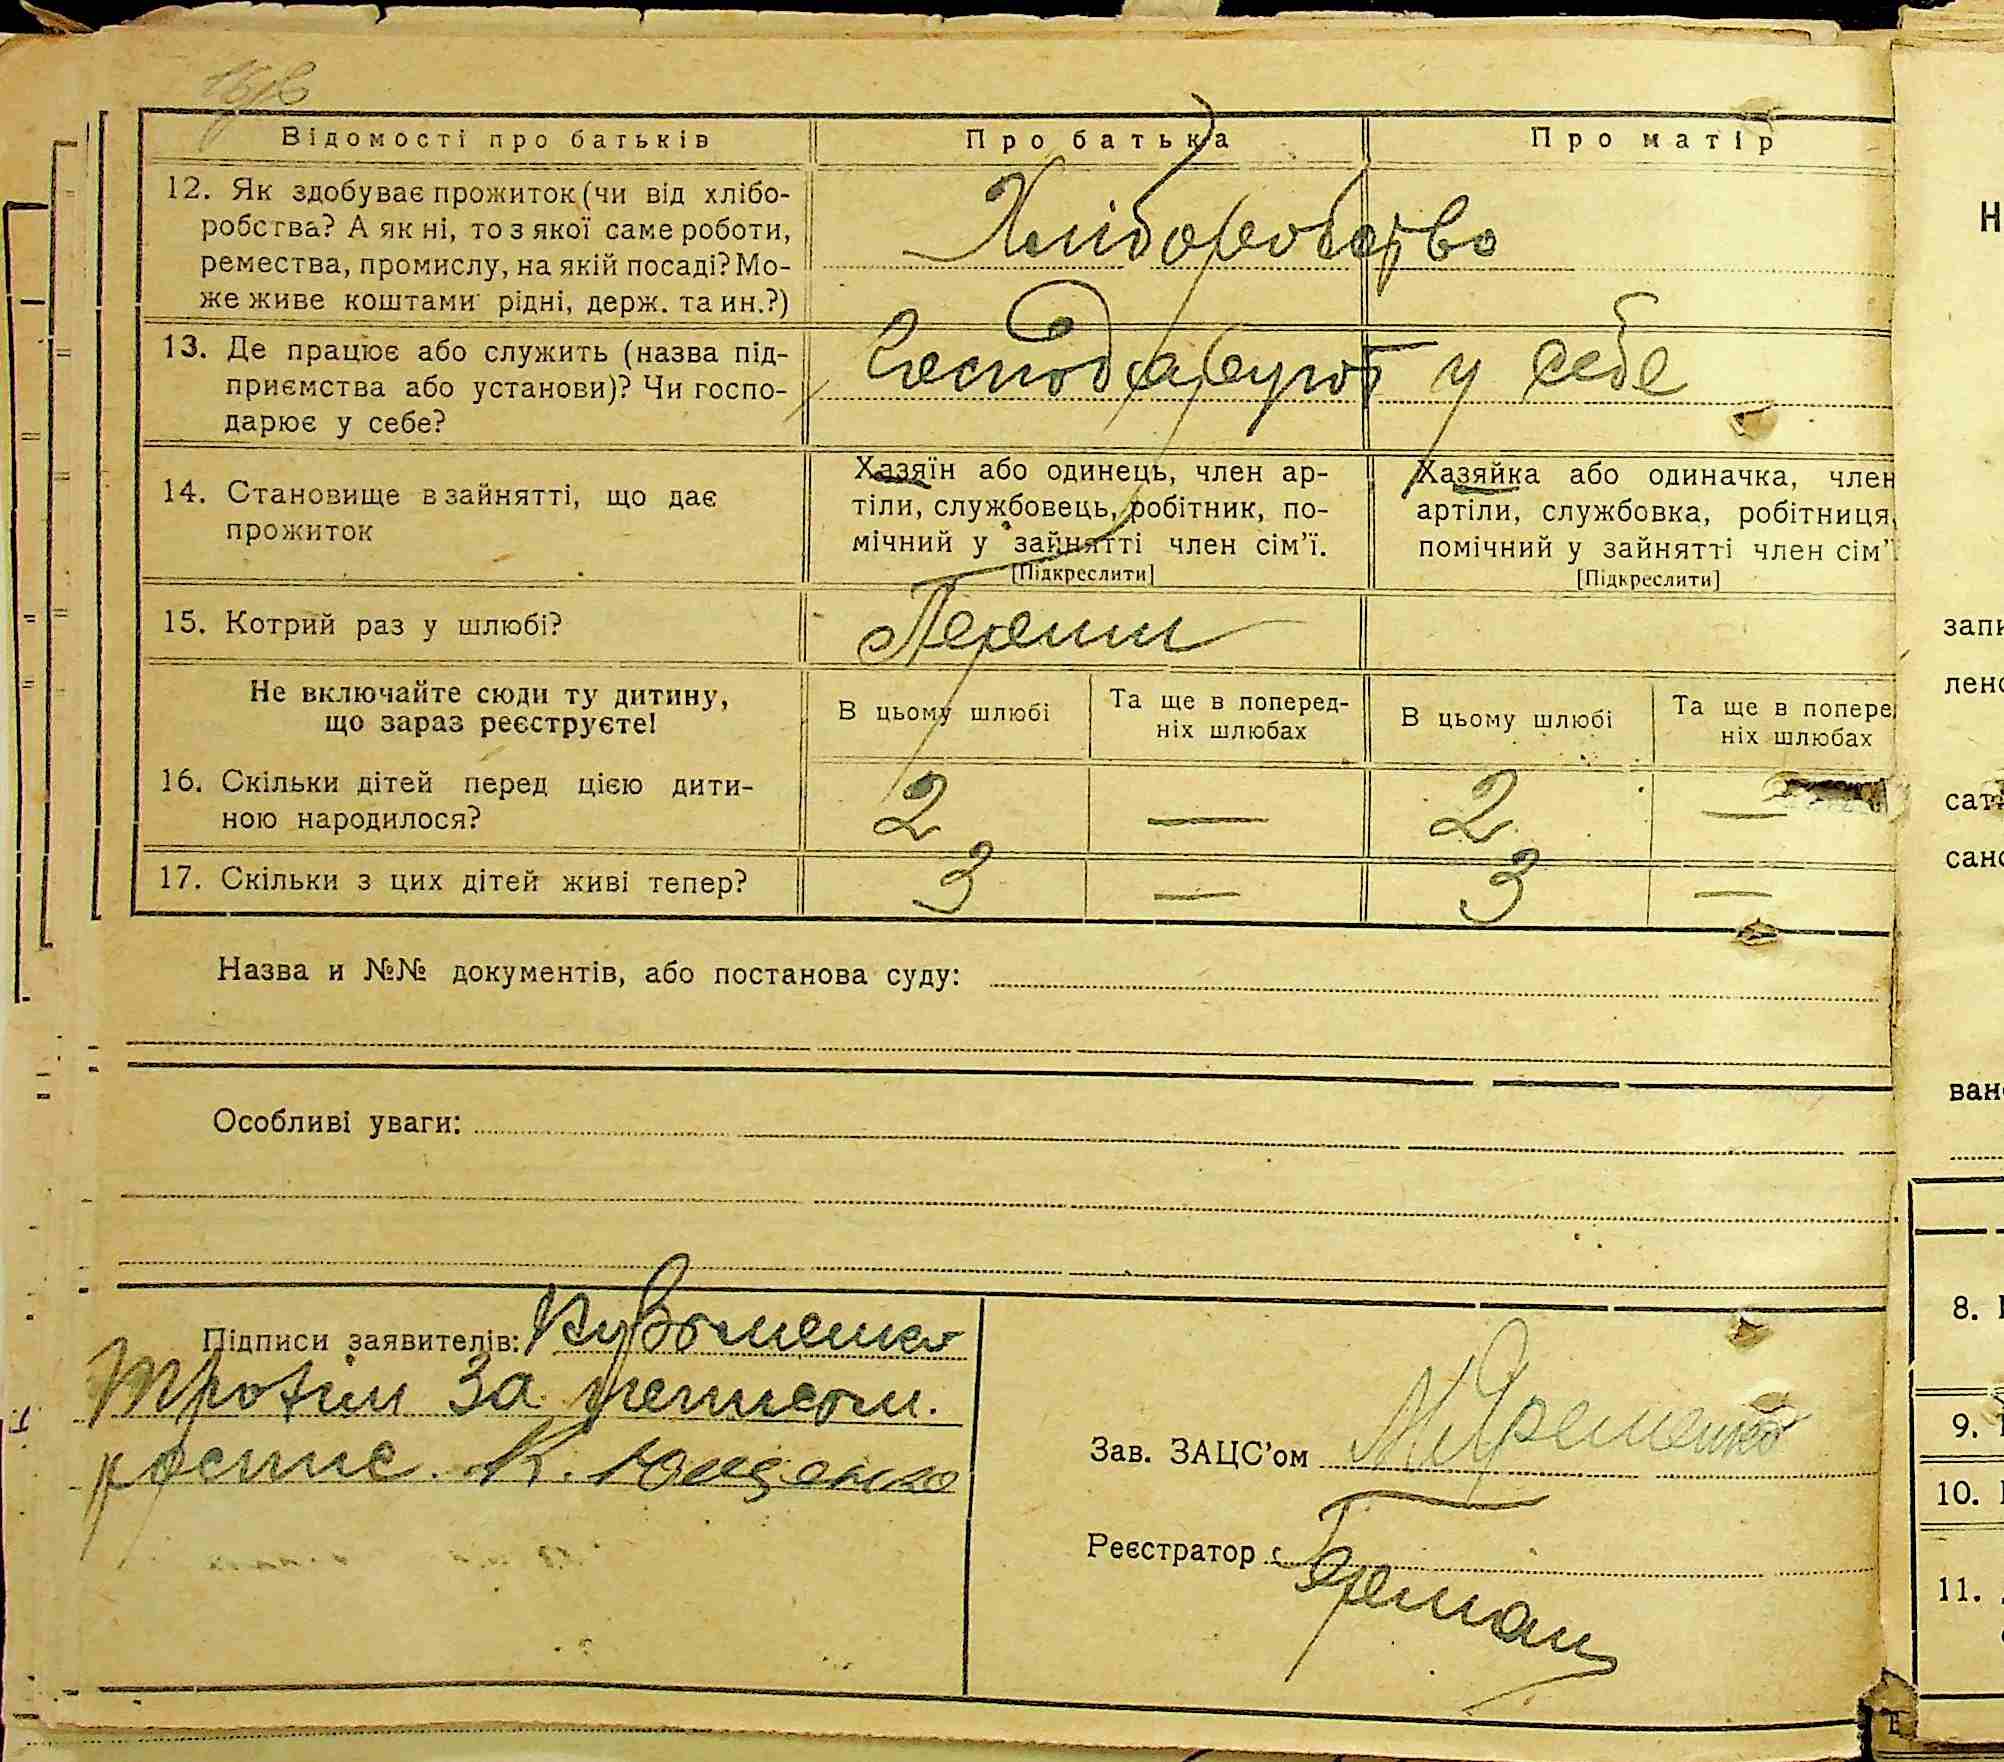 Відомості про батьків
Про батька
Про матір
12. Як здобуває прожиток (чи від хлібо-
робства? А як ні, то з якої саме роботи,
ремества, промислу, на якій посаді? Мо-
же живе коштами рідні, держ. та ин.?)
Хліборобство
13. Де працює або служить (назва під-
приємства або установи)? Чи госпо-
дарює у себе?
Господарують у себе
14. Становище в зайнятті, що дає
прожиток
Хазяїн або одинець, член ар-
тіли, службовець, робітник, по-
мічний у зайнятті член сім'ї.
[Підкреслити]
Хазяйка або одиначка, член
артіли, службовка, робітниця,
помічний у зайнятті член сім'ї
[Підкреслити]
15. Котрий раз у шлюбі?
Перший
Не включайте сюди ту дитину,
що зараз реєструєте!
В цьому шлюбі
Та ще в поперед-
ніх шлюбах
В цьому шлюбі
Та ще в попере
ніх шлюбах
16. Скільки дітей перед цією дити-
ною народилося?
2 — 2 —
17. Скільки з цих дітей живі тепер?
3 — 3 —
Назва и №№ документів, або постанова суду:
Особливі уваги:
Підписи заявителів:
Трохим За
К. Ющенко
Зав. ЗАЦС'ом М Яременко
Реєстратор Герман
Н
запи
лено
сано
вано
8.
9.
10.
11.